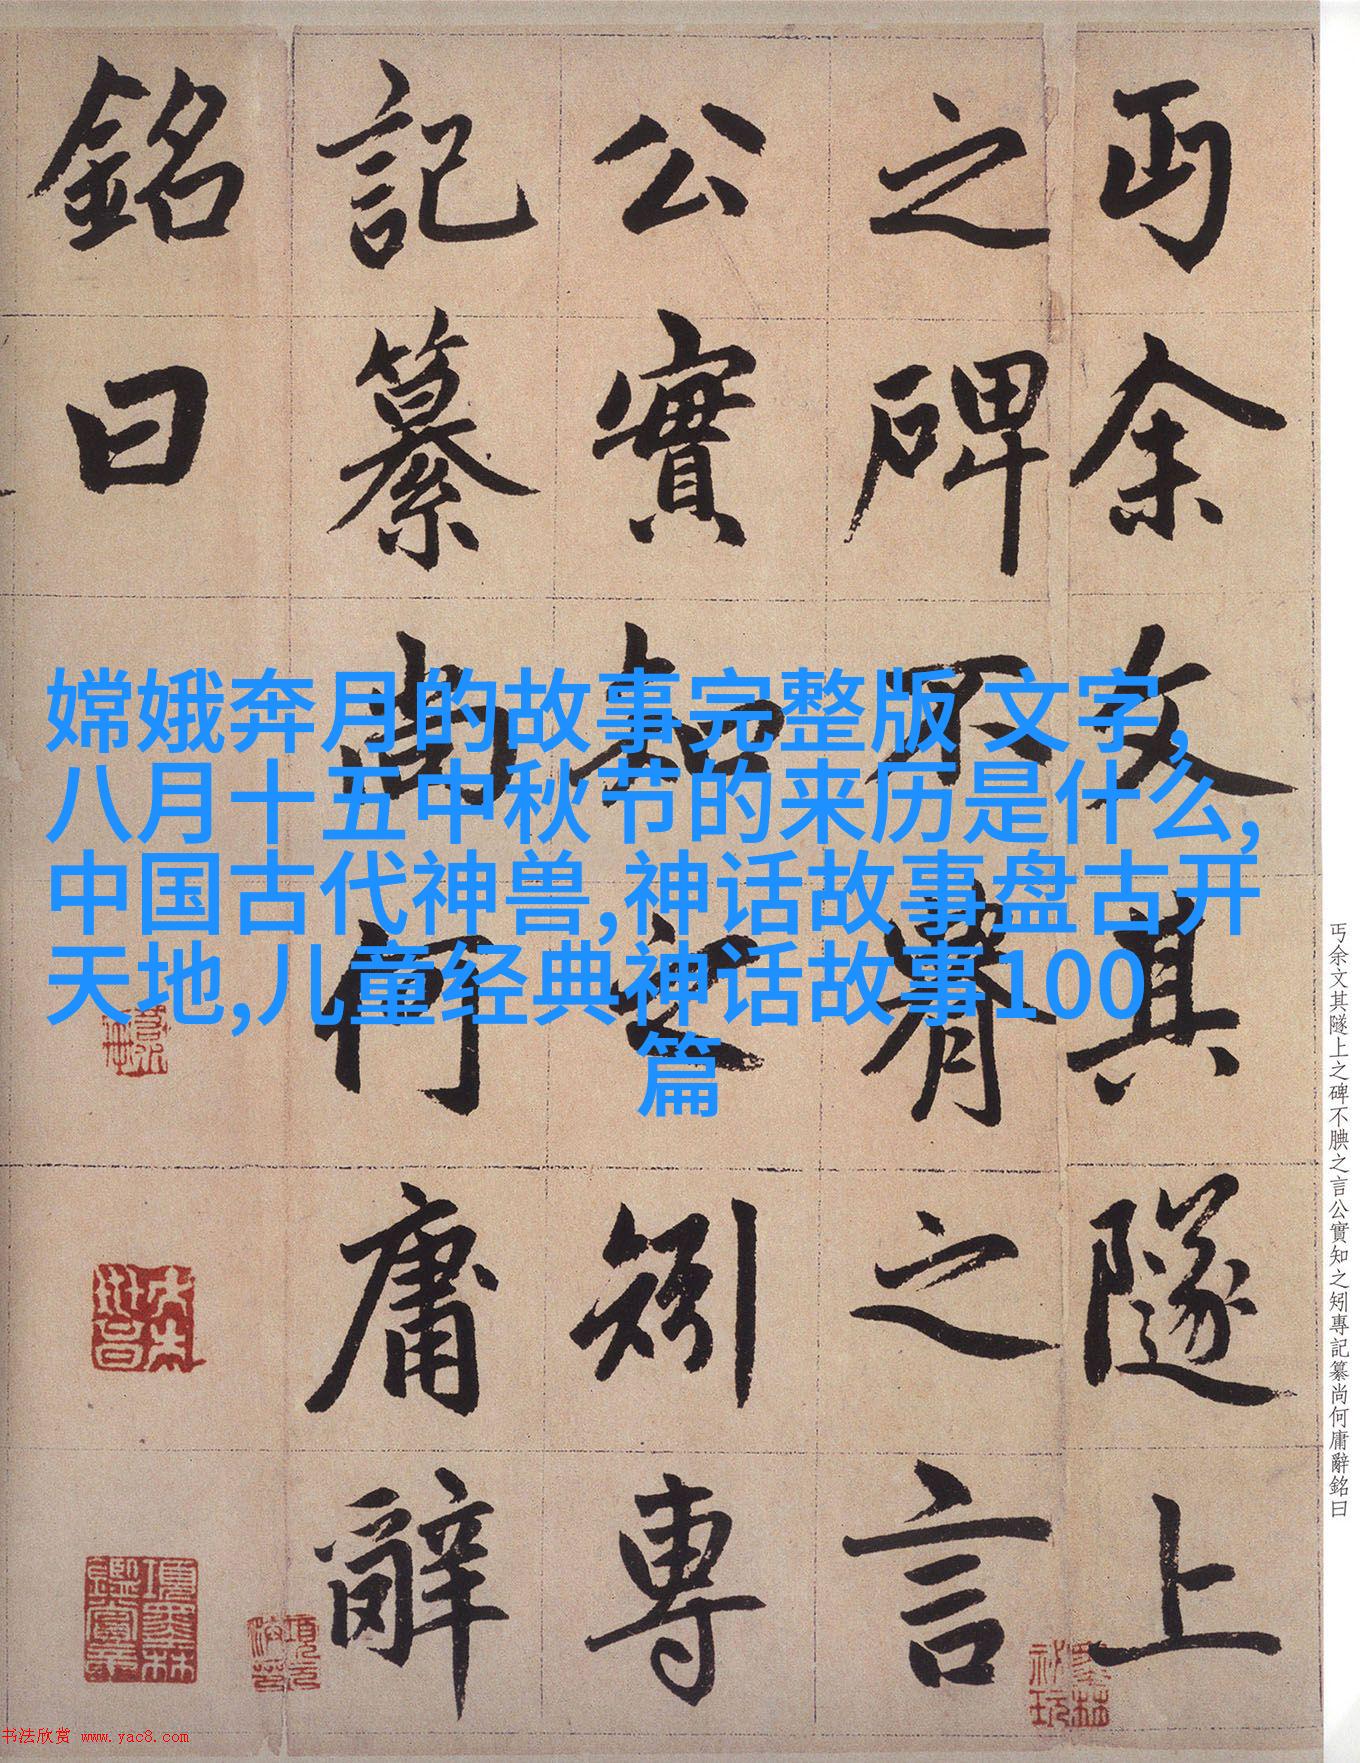 嫦娥奔月的故事完整版 文字,
八月十五中秋节的来历是什么,
中国古代神兽,神话故事盘古开
天地,儿童经典神话故事100
篇
丐余文其隧上
之碑不腆之言
公實知之矧專
記纂尚何庸辭
銘曰
丐余文其隧上之碑不腆之言公實知之矧專記纂尚何庸辭銘曰
項墨林鑑賞章
墨林祕玩
书法欣赏 www.yac8.com